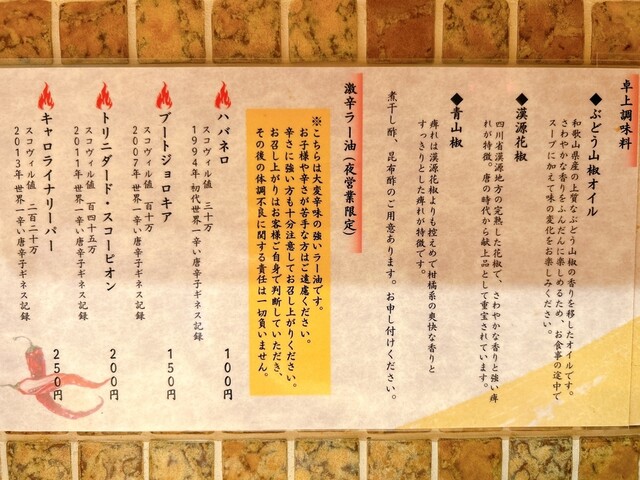 卓上調味料
◆ぶどう山椒オイル
和歌山県産の上質なぶどう山椒の香りを移したオイルです。
さわやかな香りをふんだんに楽しめるため、お食事の途中で
スープに加えて味の変化をお楽しみください。
◆漢源花椒
四川省漢源地方の完熟した花椒で、さわやかな香りと強い痺
れが特徴。唐の時代から献上品として重宝されています。
◆青山椒
痺れは漢源花椒よりも控えめで柑橘系の爽快な香りと
すっきりとした痺れが特徴です。
煮干し酢、昆布酢のご用意あります。お申し付けください。
激辛ラー油(夜営業限定)
※こちらは大変辛味の強いラー油です。
お子様や辛さが苦手な方はご遠慮ください。
辛さに強い方も十分注意してお召し上がりください。
お召し上がりはお客様ご自身で判断していただき、
その後の体調不良に関する責任は一切負いません。
ハバネロ 100円
スコヴィル値 三十万
1994年初代世界一辛い唐辛子ギネス記録
ブートジョロキア 150円
スコヴィル値 百十万
2007年世界一辛い唐辛子ギネス記録
トリニダード・スコーピオン 200円
スコヴィル値 百四十五万
2011年世界一辛い唐辛子ギネス記録
キャロライナリーパー 250円
スコヴィル値 二百二十万
2013年世界一辛い唐辛子ギネス記録